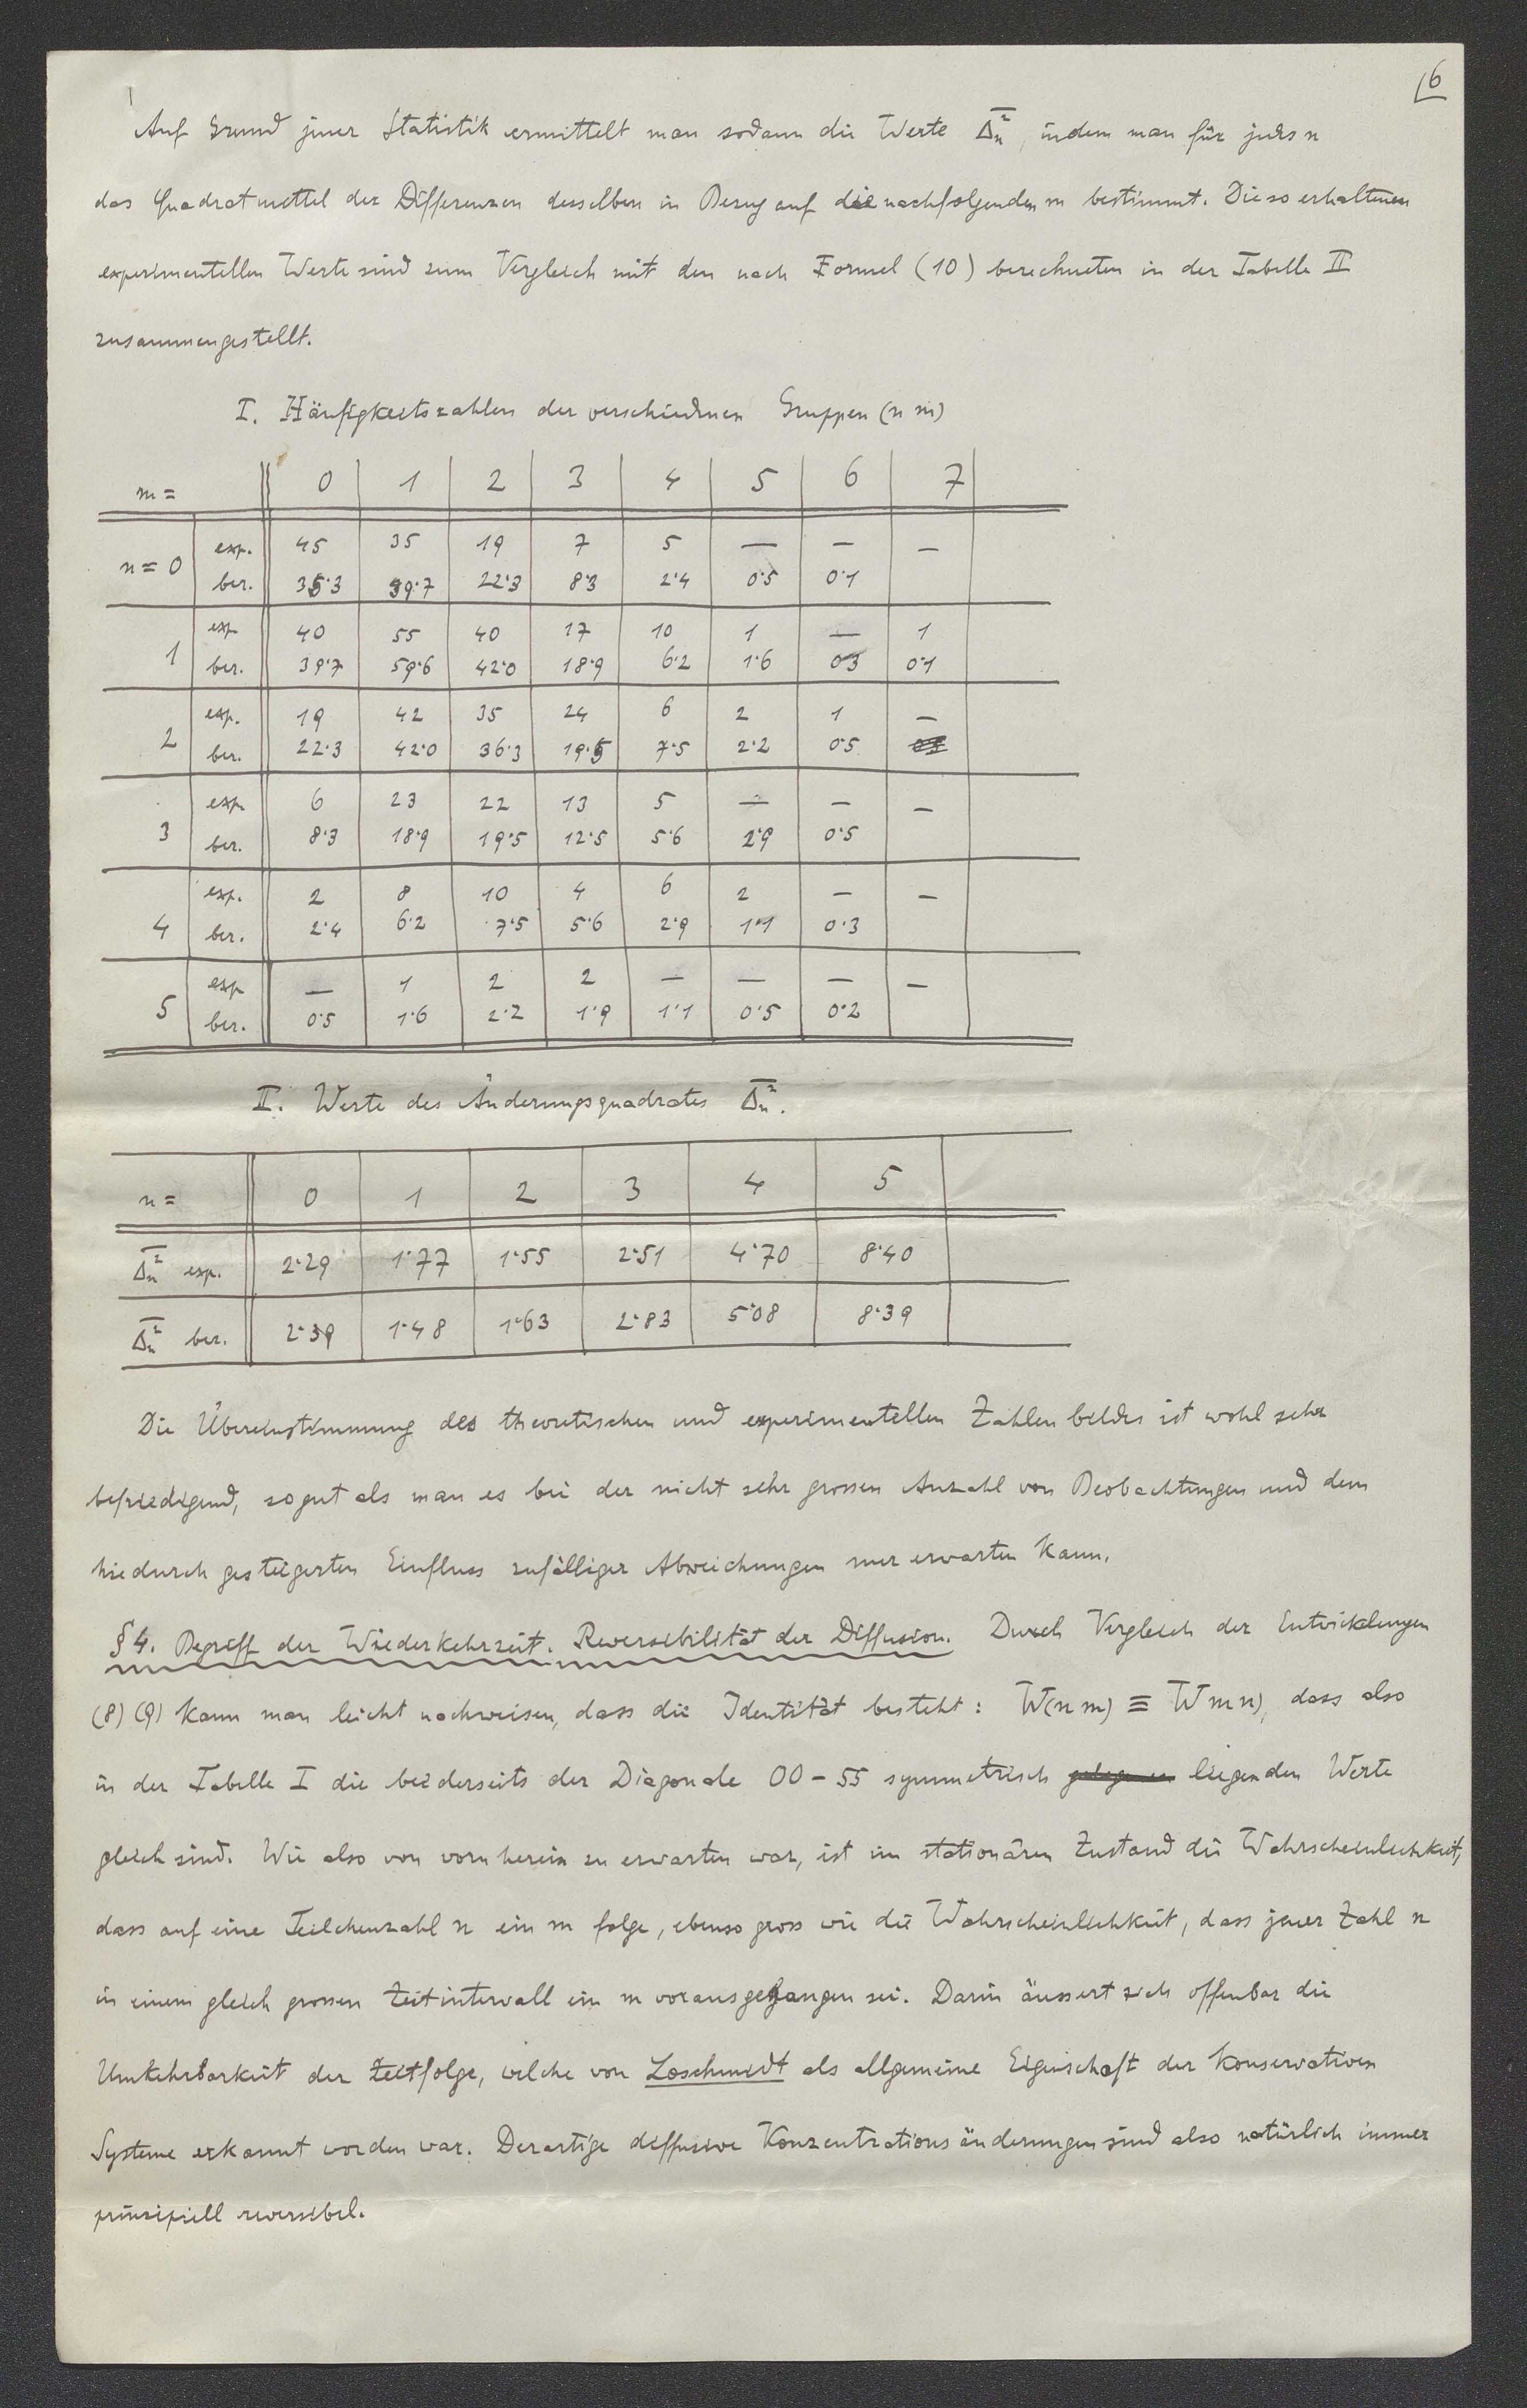 6
Auf Grund jener Statistik ermittelt man sodann die Werte Δ̅ₙ², indem man für jedes n
das Quadratmittel der Differenzen desselben in Bezug auf die nachfolgenden m bestimmt. Die so erhaltenen
experimentellen Werte sind zum Vergleich mit den nach Formel (10) berechneten in der Tabelle II
zusammengestellt.
I. Häufigkeitszahlen der verschiedenen Gruppen (n m)
m = 0 1 2 3 4 5 6 7
n = 0 exp. 45 35 19 7 5 — — —
ber. 35·3 39·7 22·3 8·3 2·4 0·5 0·1
1 exp 40 55 40 17 10 1 — 1
ber. 39·7 59·6 42·0 18·9 6·2 1·6 0·3 0·1
2 exp. 19 42 35 24 6 2 1 —
ber. 22·3 42·0 36·3 19·5 7·5 2·2 0·5
3 exp 6 23 22 13 5 — — —
ber. 8·3 18·9 19·5 12·5 5·6 2·9 0·5
4 exp. 2 8 10 4 6 2 — —
ber. 2·4 6·2 7·5 5·6 2·9 1·1 0·3
5 exp — 1 2 2 — — — —
ber. 0·5 1·6 2·2 1·9 1·1 0·5 0·2
II. Werte des Änderungsquadrates Δ̅ₙ².
n = 0 1 2 3 4 5
Δ̅ₙ² exp. 2·29 1·77 1·55 2·51 4·70 8·40
Δ̅ₙ² ber. 2·39 1·48 1·63 2·83 5·08 8·39
Die Übereinstimmung des theoretischen und experimentellen Zahlenbildes ist wohl sehr
befriedigend, so gut als man es bei der nicht sehr grossen Anzahl von Beobachtungen und dem
hiedurch gesteigerten Einfluss zufälliger Abweichungen nur erwarten kann.
§ 4. Begriff der Wiederkehrzeit. Reversibilität der Diffusion. Durch Vergleich der Entwicklungen
(8) (9) kann man leicht nachweisen, dass die Identität besteht: W(n m) ≡ W m n), dass also
in der Tabelle I die beiderseits der Diagonale 00 – 55 symmetrisch liegenden Werte
gleich sind. Wie also von vornherein zu erwarten war, ist im stationären Zustand die Wahrscheinlichkeit,
dass auf eine Teilchenzahl n ein m folge, ebenso gross wie die Wahrscheinlichkeit, dass jener Zahl n
in einem gleich grossen Zeitintervall ein m vorausgegangen sei. Darin äussert sich offenbar die
Umkehrbarkeit der Zeitfolge, welche von Loschmidt als allgemeine Eigenschaft der konservativen
Systeme erkannt worden war. Derartige diffusive Konzentrationsänderungen sind also natürlich immer
prinzipiell reversibel.